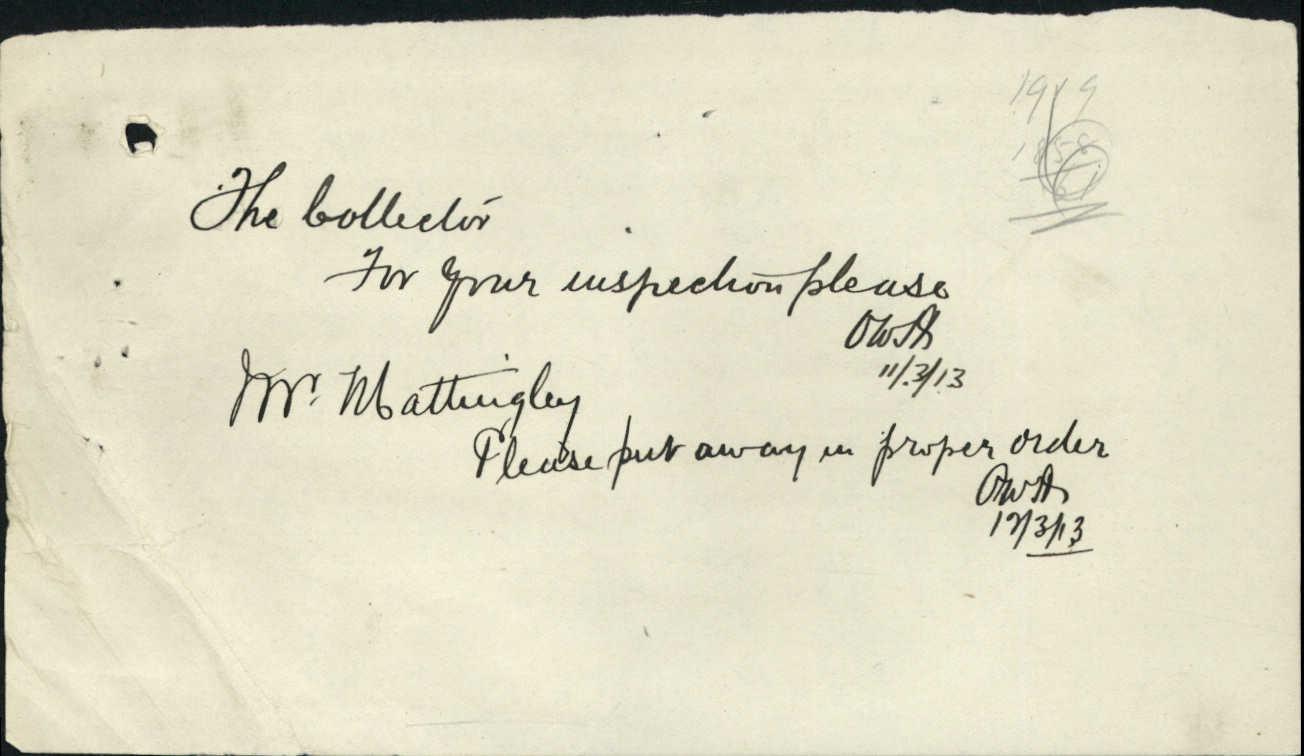 1919
1858
The Collector
For your inspection please
11/3/13
Mr. Mattingley
Please put away in proper order
12/3/13